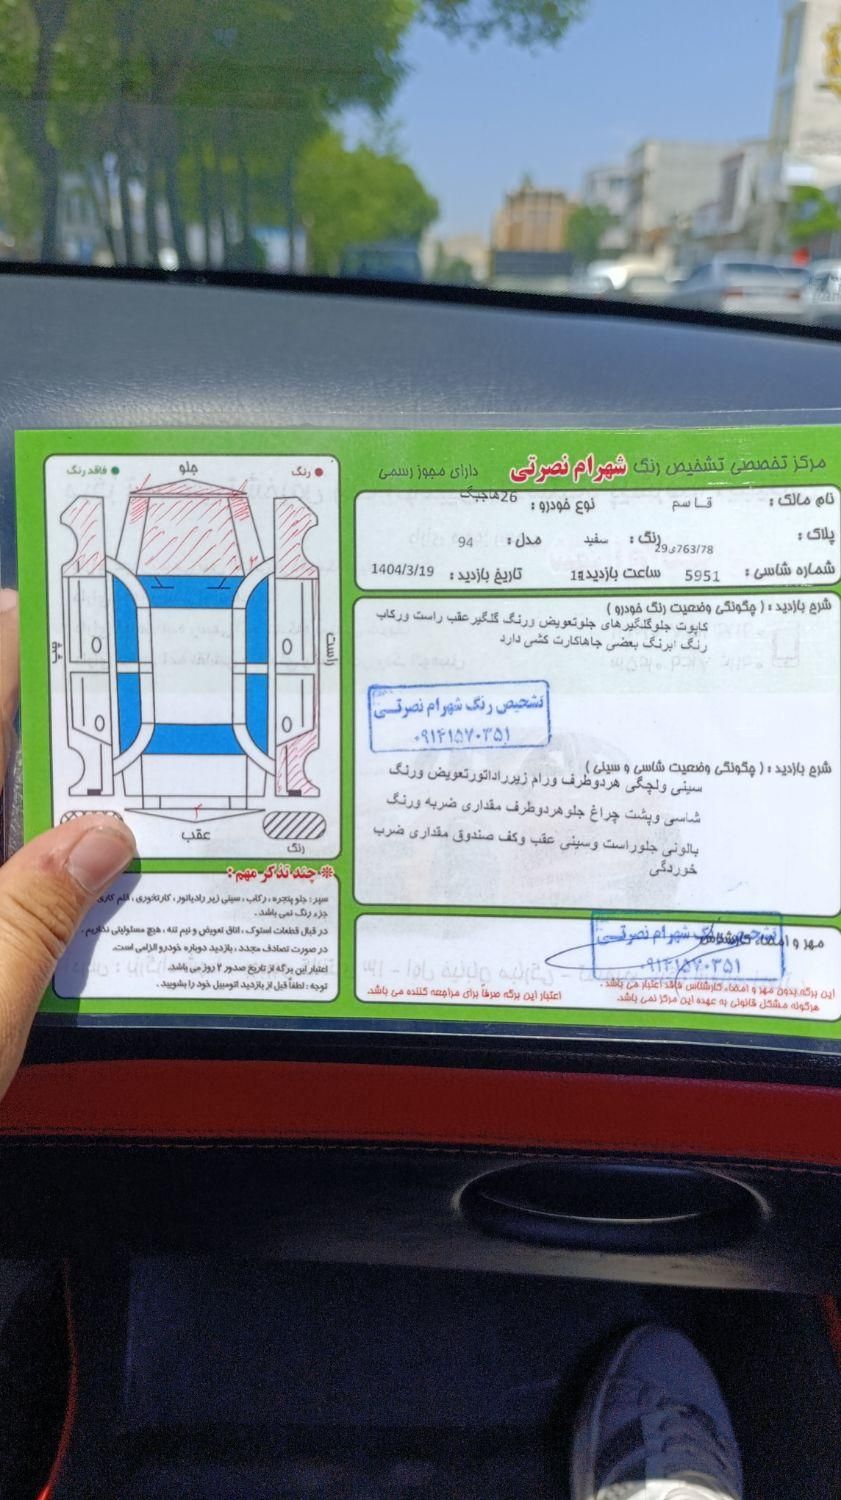 مرکز تخصصی تشخیص رنگ شهرام نصرتی دارای مجوز رسمی
نام مالک : قاسم نوع خودرو : 26هاچبک
پلاک : 29ی763/78 رنگ : سفید مدل : 94
شماره شاسی : 5951 ساعت بازدید : تاریخ بازدید : 1404/3/19
شرح بازدید : ( چگونگی وضعیت رنگ خودرو )
کاپوت جلوگلگیرهای جلوتعویض ورنگ گلگیرعقب راست ورکاب
رنگ ابرنگ بعضی جاهاکارت کشی دارد
تشخیص رنگ شهرام نصرتی
۰۹۱۴۱۵۷۰۳۵۱
شرح بازدید : ( چگونگی وضعیت شاسی و سینی )
سینی ولچگی هردوطرف ورام زیررادتورتعویض ورنگ
شاسی وپشت چراغ جلوهردوطرف مقداری ضربه ورنگ
بالونی جلوراست وسینی عقب وکف صندوق مقداری ضرب
خوردگی
مهر و امضاء کارشناس
تشخیص رنگ شهرام نصرتی
۰۹۱۴۱۵۷۰۳۵۱
این برگه بدون مهر و امضاء کارشناس فاقد اعتبار می باشد .
هرگونه مشکل قانونی به عهده این مرکز نمی باشد.
اعتبار این برگه صرفاً برای مراجعه کننده می باشد.
رنگ
فاقد رنگ
جلو
راست
چپ
۲
۲
عقب
رنگ
چند تذکر مهم :
سپر ؛ جلو پنجره ، رکاب ، سینی زیر رادیاتور ، کارتخوری ، قلم کاری
جزء رنگ نمی باشد .
در قبال قطعات استوک ، اتاق تعویض و نیم تنه ، هیچ مسئولیتی نداریم .
در صورت تصادف مجدد ، بازدید دوباره خودرو الزامی است.
اعتبار این برگه از تاریخ صدور ۲ روز می باشد.
توجه : لطفاً قبل از بازدید اتومبیل خود را بشویید .